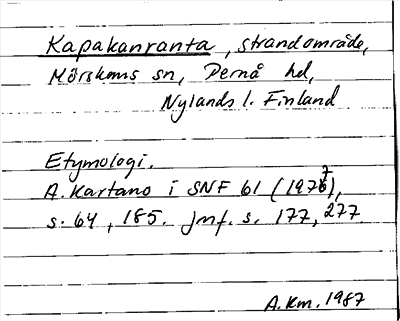 Kapakanranta, strandområde,
Mörskoms sn, Pernå hd,
Nylands l. Finland
Etymologi.
A. Kartano i SNF 61 (1977),
s. 64, 185. Jmf. s. 177, 277.
A.Km. 1987